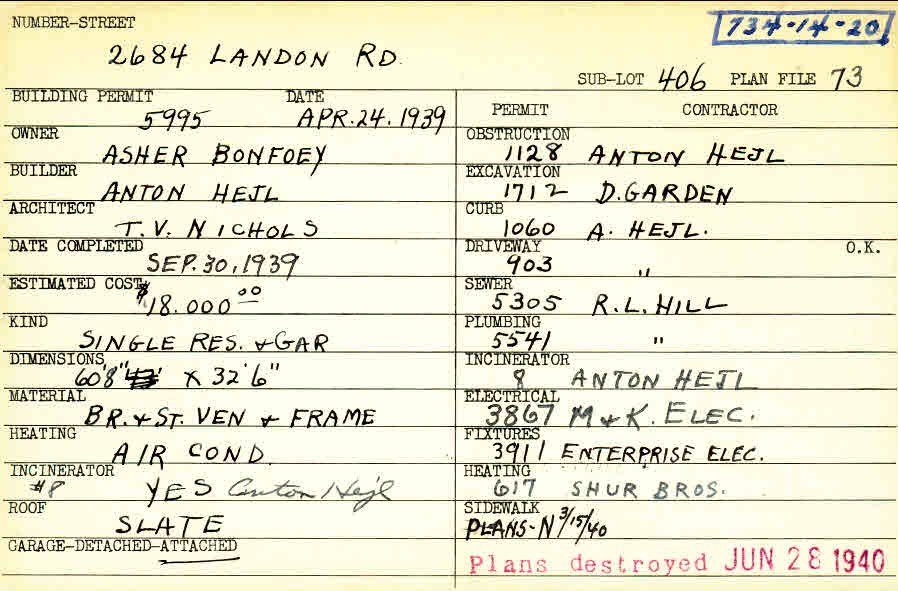 NUMBER-STREET
734-14-20
2684 LANDON RD.
SUB-LOT 406 PLAN FILE 73
BUILDING PERMIT DATE
5995 APR.24.1939
OWNER
ASHER BONFOEY
BUILDER
ANTON HEJL
ARCHITECT
T.V. NICHOLS
DATE COMPLETED
SEP.30,1939
ESTIMATED COST
$18.000 00
KIND
SINGLE RES. & GAR
DIMENSIONS
60'8" X 32'6"
MATERIAL
BR. & ST. VEN & FRAME
HEATING
AIR COND.
INCINERATOR
#8 YES Anton Hejl
ROOF
SLATE
GARAGE-DETACHED-ATTACHED
PERMIT CONTRACTOR
OBSTRUCTION
1128 ANTON HEJL
EXCAVATION
1712 D.GARDEN
CURB
1060 A. HEJL.
DRIVEWAY O.K.
903 "
SEWER
5305 R.L.HILL
PLUMBING
5541 "
INCINERATOR
8 ANTON HEJL
ELECTRICAL
3867 M & K. ELEC.
FIXTURES
3911 ENTERPRISE ELEC.
HEATING
617 SHUR BROS.
SIDEWALK
PLANS-N 3/15/40
Plans destroyed JUN 28 1940